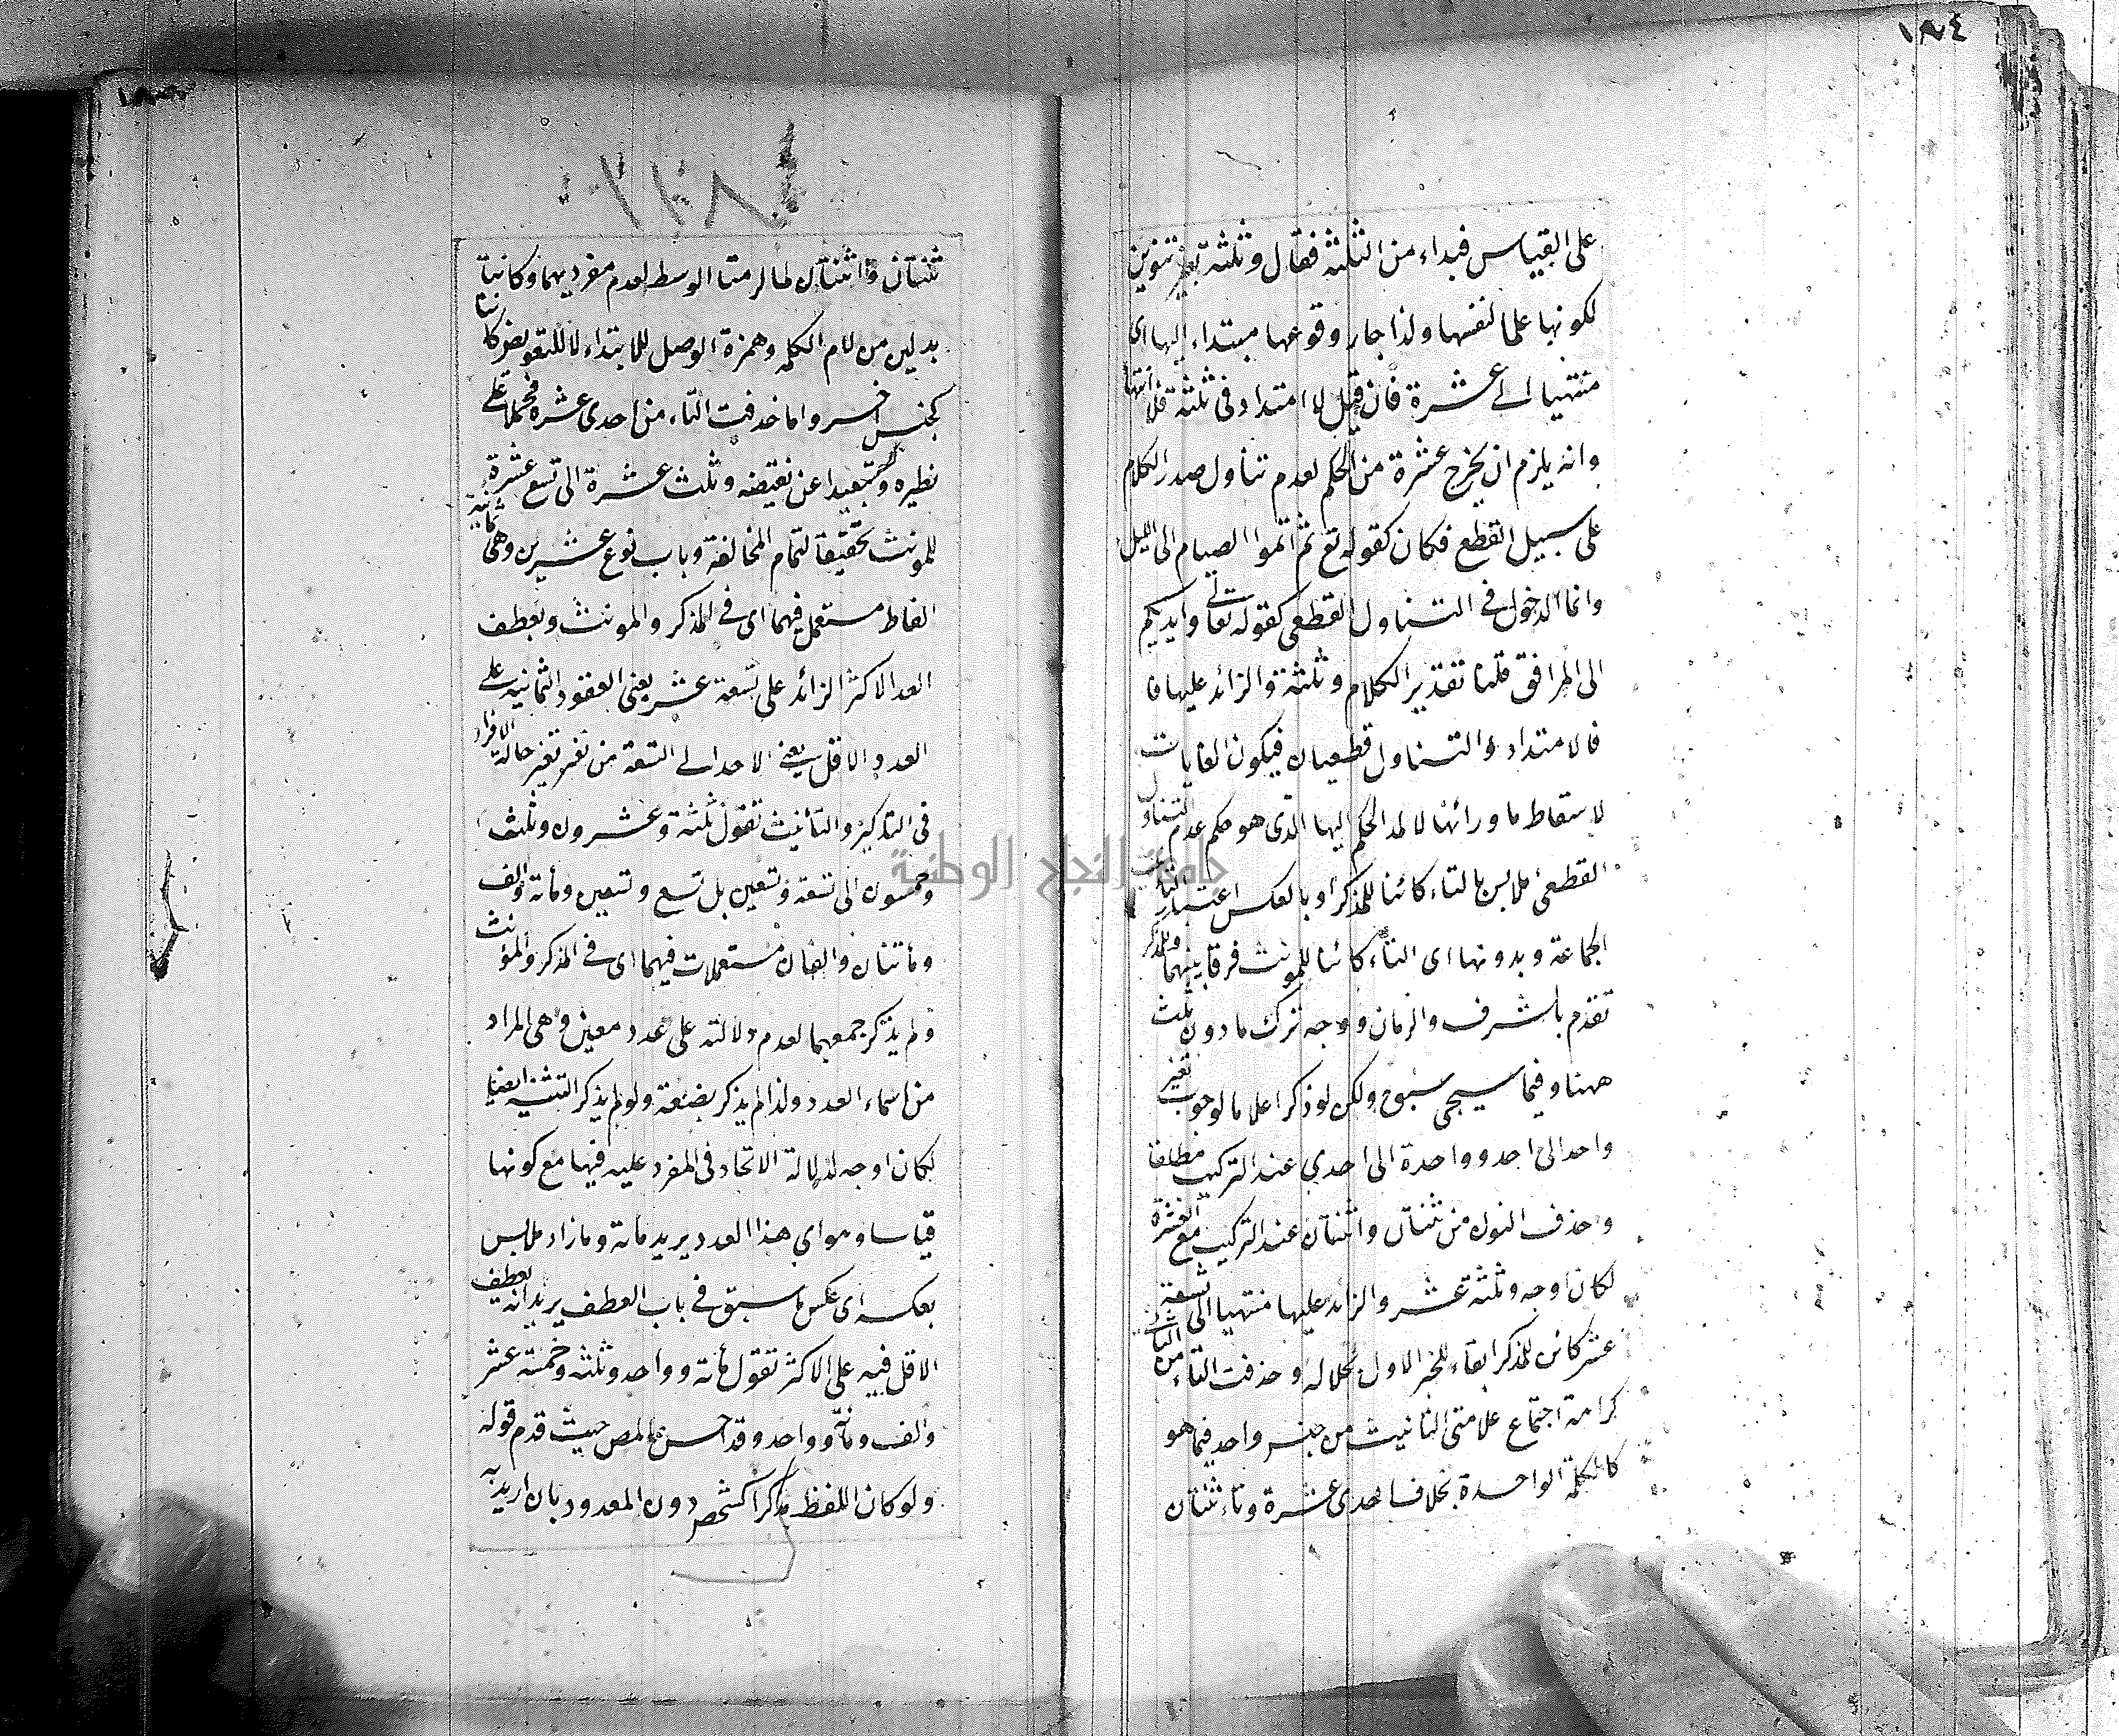 ١٨٤
على القياس فبداء من الثلثه فقال وثلثه بغير تنوين
لكونها علما لنفسها ولذا جاز وقوعها مبتداء اليها اى
منتهيا الى عشرة فان قيل لا امتداد فى ثلثه فلا انتهاء
وانه يلزم ان يخرج عشرة من الحكم لعدم تناول صدر الكلام
على سبيل القطع فكان كقوله تع ثم اتموا الصيام الى الليل
وانما الدخول فى التناول القطعى كقوله تعالى وايديكم
الى المرافق قلنا تقدير الكلام وثلثة والزائد عليها فا
فالامتداد والتناول قطعيان فيكون الغايات
لاسقاط ما ورائها لا لمد الحكم اليها الذى هو حكم عدم التناول
القطعى ملابس بالتاء كائنا للمذكر او بالعكس اعتبار التأنيث
الجماعة وبدونها اى التاء كائنا للمونث فرقا بينهما وللمذكر
تقدم بالشرف والزمان ووجه ترك ما دون ثلث
ههنا وفيما سيجى سبق ولكن لو ذكر اعلاما لوجوب تغير
واحد الى احد وواحدة الى احدى عند التركيب مطلقا
وحذف النون من ثنتان واثنتان عند التركيب مع العشرة
لكان اوجه وثلثة عشر والزائد عليها منتهيا الى تسعة
عشر كائن للمذكر ابقاء للجز الاول بحلاله وحذفت التاء من الثانى
كراهة اجتماع علامتى التانيث من جنس واحد فيما هو
كالكلمة الواحدة بخلاف احدى عشرة وتاء ثنتان
ثنتان واثنتان لما لزمتا الوسط لعدم مفرديهما وكانتا
بدلين من لام الكلمه وهمزة الوصل للابتداء لا للتعويض كانتا
كجنس اخر وانما حذفت التاء من احدى عشره حملا على
نظيره وتبعيدا عن نقيضه وثلث عشرة الى تسع عشرة
للمونث تحقيقا لتمام المخالفة وباب نوع عشرين وهى ثمانية
الفاظ مستعمل فيهما اى فى المذكر والمونث ويعطف
العدد الاكثر الزائد على تسعة عشر يعنى العقود الثمانيه على
العدد الاقل يعنى الاحد الى التسعة من غير تغير حالة الافراد
فى التذكير والتأنيث تقول ثلثة وعشرون وثلث
وخمسون الى تسعة وتسعين بل تسع وتسعين ومأئة والف
ومائتان والفان مستعملات فيهما اى فى المذكر والمؤنث
ولم يذكر جمعهما لعدم دلالته على عدد معين وهى المراد
من اسماء العدد ولذا لم يذكر بضعة ولو لم يذكر التثنيه ايضا
لكان اوجه لدلالة الاتحاد فى المفرد عليه فيها مع كونها
قياسا وهو اي هذا العدد يريد مائة وما زاد ملابس
بعكسه اى عكس ما سبق فى باب العطف يريد انه يعطف
الاقل فيه على الاكثر تقول مائة وواحد وثلثه وخمسة عشر
والف ومائة وواحد وقد احسن المص حيث قدم قوله
ولو كان اللفظ مذكرا كشخص دون المعدود بان اريد به
جامعة النجاح الوطنية